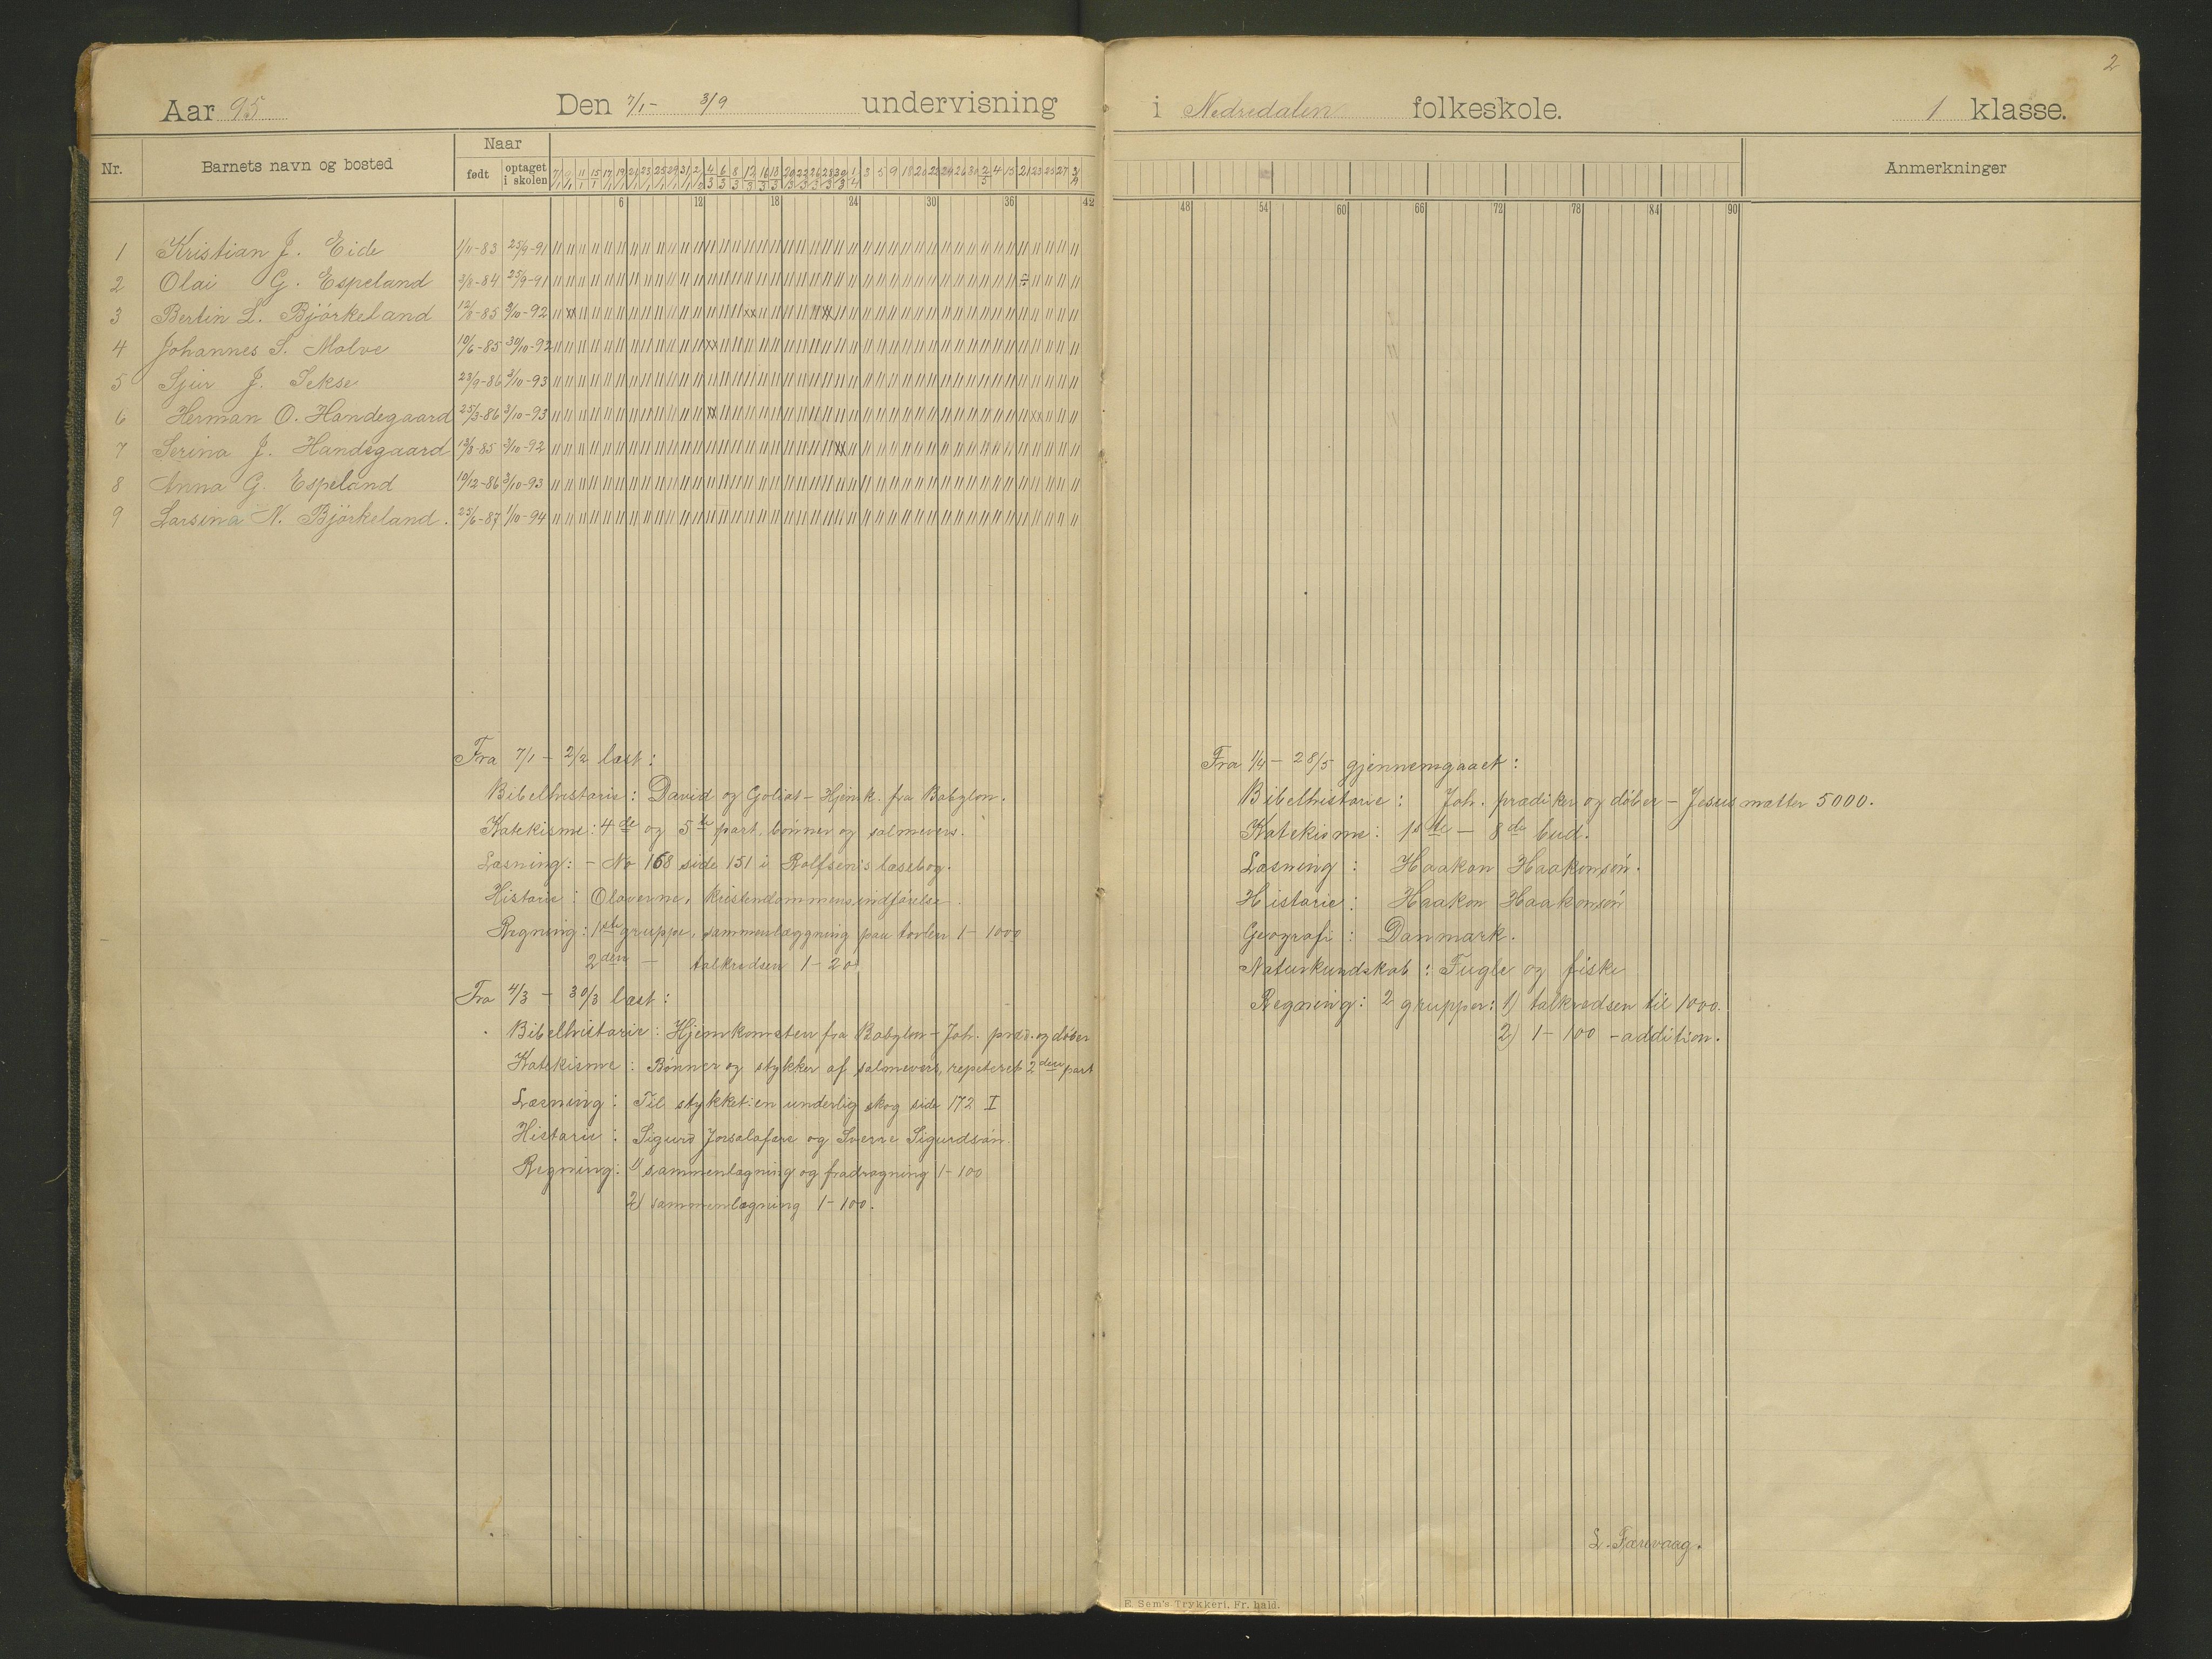 2
Aar 95 Den 7/1 - 3/9 undervisning i Nedredalen folkeskole. 1 klasse.
Nr. Barnets navn og bosted Naar født optaget i skolen Anmerkninger
6 12 18 24 30 36 42 48 54 60 66 72 78 84 90
1 Kristian J. Eide 1/11-83 25/9-91
2 Olai G. Espeland 3/8-84 25/9-91
3 Bertin L. Björkeland 12/8-85 3/10-92
4 Johannes S. Molve 10/6-85 30/10-92
5 Sjur J. Sekse 23/9-86 3/10-93
6 Herman O. Handegaard 25/3-86 3/10-93
7 Serina J. Handegaard 13/8-85 3/10-92
8 Anna G. Espeland 19/12-86 3/10-93
9 Larsina N. Björkeland. 25/6-87 1/10-94
Fra 7/1 - 2/2 læst:
Bibelhistorie: David og Goliat - Hjemk. fra Babylon.
Katekisme: 4de og 5te part, bönner og salmevers.
Læsning: - No 168 side 151 i Rolfsen's læsebog.
Historie: Olaverne, kristendommens indförelse.
Regning: 1ste gruppe, sammenlæggning paa tavlen 1 - 1000
2den - talkredsen 1 - 20.
Fra 4/3 - 30/3 læst:
Bibelhistorie: Hjemkomsten fra Babylon - Joh. præd. og döber
Katekisme: Bönner og stykker af salmevers, repeteret 2den part
Læsning: Til stykket: en underlig skog side 172 I
Historie: Sigurd Jorsalafare og Sverre Sigurdsön.
Regning: 1) sammenlægning og fradragning 1 - 100
2) sammenlægning 1 - 100.
Fra 1/4 - 28/5 gjennemgaaet:
Bibelhistorie: Joh. prædiker og döber - Jesus mætter 5000.
Katekisme: 1ste - 8de bud.
Læsning: Haakon Haakonsön.
Historie: Haakon Haakonsön
Geografi: Danmark.
Naturkundskab: Fugle og fiske
Regning: 2 grupper: 1) talkredsen til 1000.
2) 1 - 100 - addition.
L. Farevaag.
E. Sem's Trykkeri, Fr. hald.